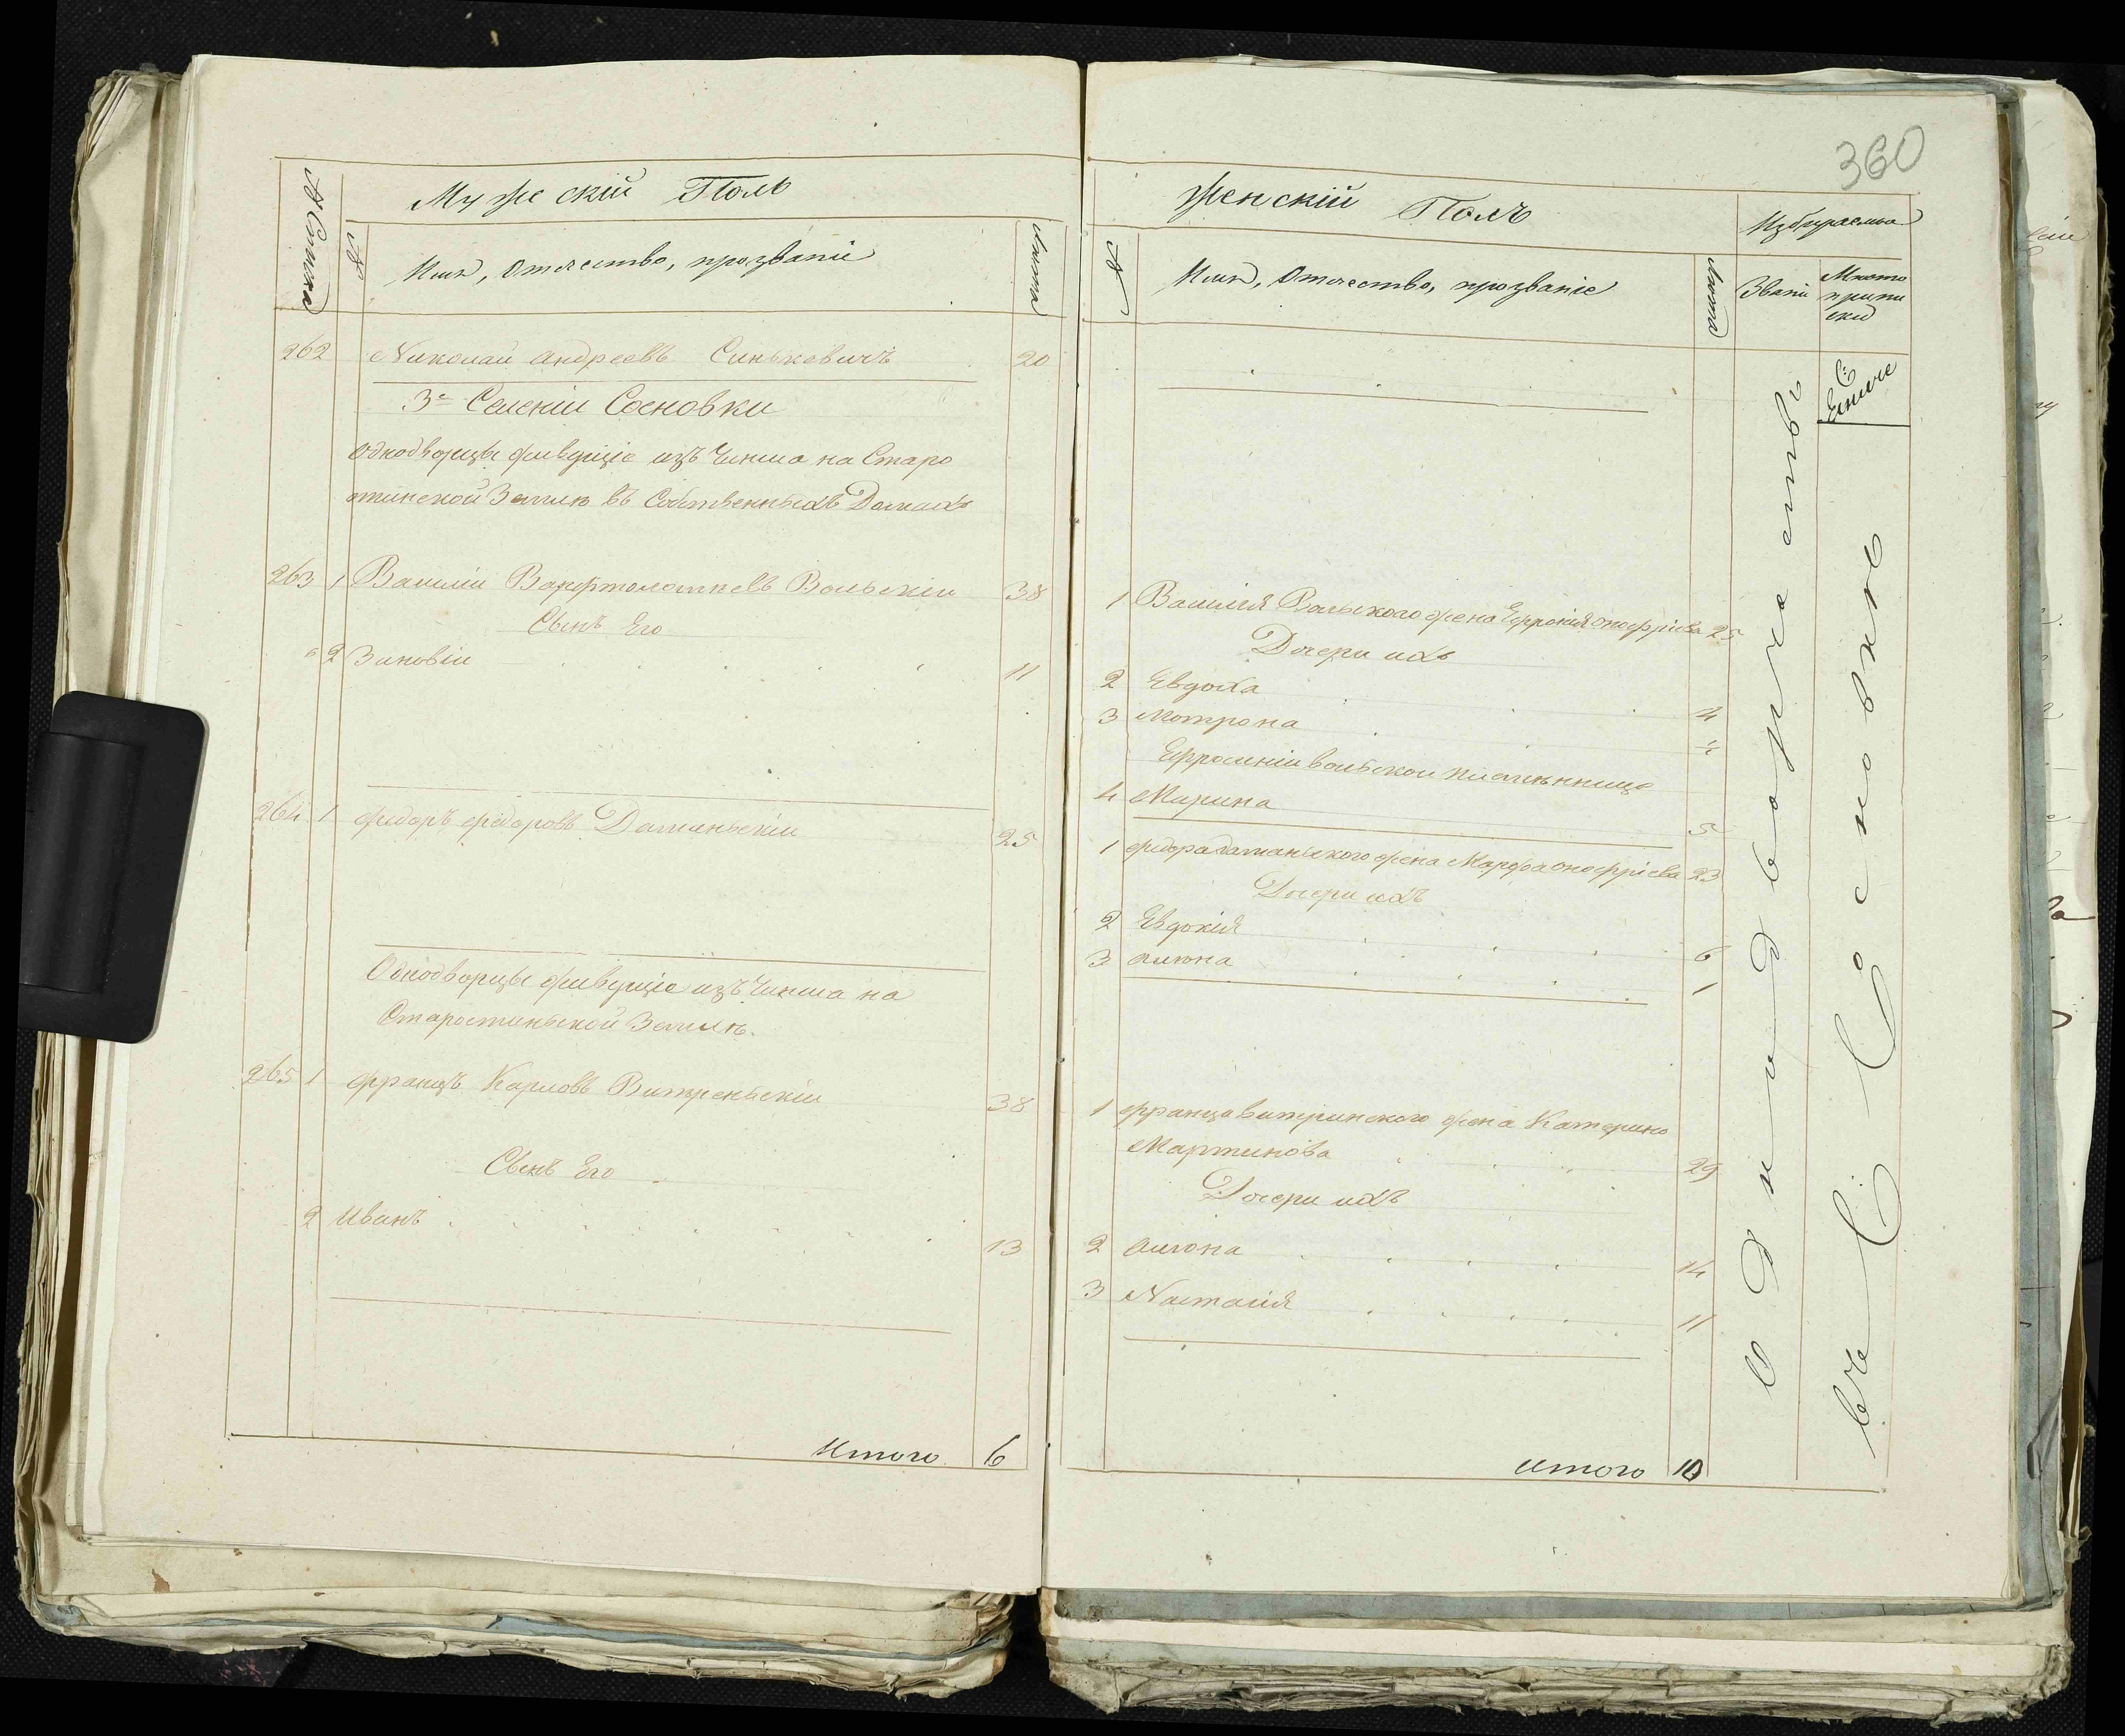 Мужескій Полъ
№ Списка
№
Имя, Отечество, прозваніе
Лѣта
262 Николай Андреевъ Синькевичъ 20
3е Селеніи Сосновки
Однодворцы живущіе изъ Чинша на Старо
стинской Землѣ въ Собственныхъ Домахъ
263 1 Василій Варфтоломѣевъ Вольскій 38
Сынъ Его
2 Зиновій 11
264 1 Федоръ Федоровъ Даманьскій 25
Однодворцы живущіе изъ Чинша на
Старостиньской Землѣ.
265 1 Францъ Карловъ Витреньскій 38
Сынъ Его
2 Иванъ 13
Итого 6
360
Женскій Полъ
Избираемыя
№
Имя, Отечество, прозваніе
Лѣта
Званіе
Мѣсто
припи
ски
С:
1 Василія Вольского жена Онофріева 25
Дочери ихъ
2 Евдоха 4
3 Мотрона
Ефросиніи Вольской племѣнница
4 Марина 5
1 Федора Даманьского жена Марфа Онофріева 23
Дочери ихъ
2 Евдокія 6
3 Алюна 1
1 Франца Витринского жена Катерина
Мартинова 29
Дочери ихъ
2 Алюна 14
3 Настасія 11
Итого 10
въ С: Сосновкѣ